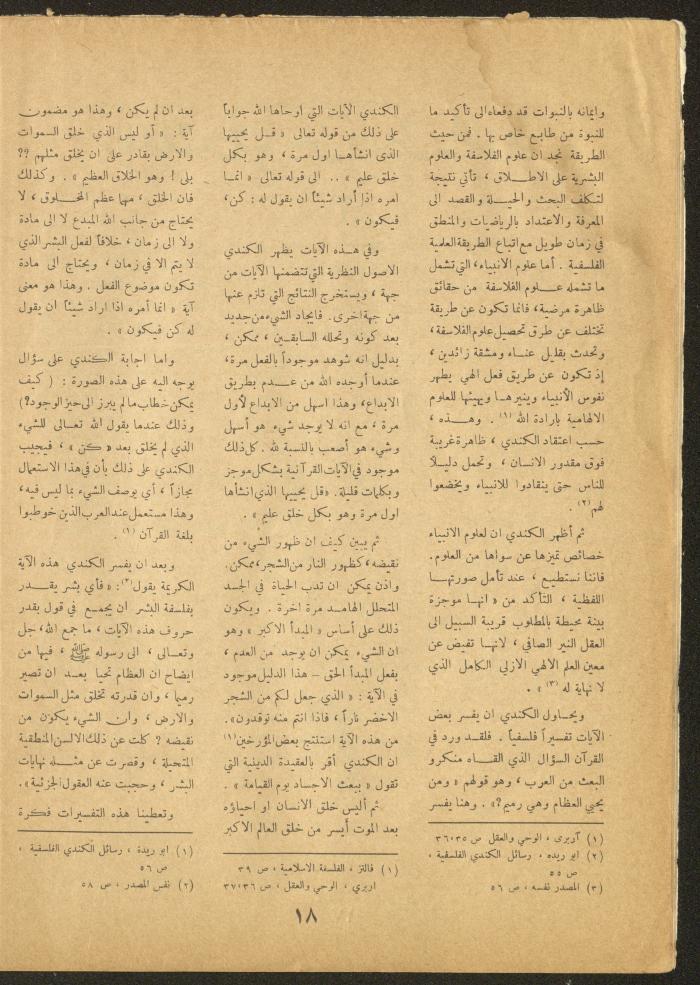 وايمانه بالنبوات قد دفعاه الى تأكيد ما
للنبوة من طابع خاص بها . فمن حيث
الطريقة نجد ان علوم الفلاسفة والعلوم
البشرية على الاطلاق ، تأتي نتيجة
لتكلف البحث والحيلة والقصد الى
المعرفة والاعتداد بالرياضيات والمنطق
في زمان طويل مع اتباع الطريقة العلمية
الفلسفية . أما علوم الأنبياء ، التي تشمل
ما تشمله علوم الفلاسفة من حقائق
ظاهرة مرضية، فانما تكون عن طريقة
تختلف عن طرق تحصيل علوم الفلاسفة ،
وتحدث بقليل عناء ومشقة زائدين ،
إذ تكون عن طريق فعل الهي يطهر
نفوس الأنبياء وينيرها ويهيئها للعلوم
الالهامية بارادة الله (١) . وهذه ،
حسب اعتقاد الكندي ، ظاهرة غريبة
فوق مقدور الانسان ، وتحمل دليلاً
للناس حتى ينقادوا للانبياء ويخضعوا
لهم (٢) .
ثم أظهر الكندي ان لعلوم الانبياء
خصائص تميزها عن سواها من العلوم.
فاننا نستطيع ، عند تأمل صورتها
اللفظية ، التأكد من « انها موجزة
بينة محيطة بالمطلوب قريبة السبيل الى
العقل النير الصافي ، لانها تفيض عن
معين العلم الالهي الأزلي الكامل الذي
لا نهاية له (٣) » .
ويحاول الكندي ان يفسر بعض
الآيات تفسيراً فلسفياً . فلقد ورد في
القرآن السؤال الذي القاه منكرو
البعث من العرب ، وهو قولهم « ومن
يحيي العظام وهي رميم؟» . وهنا يفسر
(١) آربري ، الوحي والعقل ص ٣٥،٣٦
(٢) ابو ريده ، رسائل الكندي الفلسفية ،
ص ٥٥
(٣) المصدر نفسه ، ص ٥٦
الكندي الآيات التي اوحاها الله جواباً
على ذلك من قوله تعالى « قل يحييها
الذى انشأها اول مرة ، وهو بكل
خلق عليم » .. الى قوله تعالى « انما
امره اذا أراد شيئاً ان يقول له : كن،
فيكون » .
وفي هذه الآيات يظهر الكندي
الاصول النظرية التي تتضمنها الآيات من
جهة ، ويستخرج النتائج التي تلزم عنها
من جهة اخرى . فايجاد الشيء من جديد
بعد كونه وتحلله السابقين ، ممكن ،
بدليل انه شوهد موجوداً بالفعل مرة،
عندما أوجده الله من عدم بطريق
الابداع، وهذا اسهل من الابداع لأول
مرة ، مع انه لا يوجد شيء هو أسهل
وشيء هو أصعب بالنسبة لله . كل ذلك
موجود في الآيات القرآنية بشكل موجز
وبكلمات قليلة. «قل يحييها الذي انشأها
اول مرة وهو بكل خلق عليم » .
ثم يبين كيف ان ظهور الشيء من
نقيضه ، كظهور النار من الشجر ، ممكن.
واذن يمكن ان تدب الحياة في الجسد
المتحلل الهامد مرة اخرة . ويكون
ذلك على أساس « المبدأ الاكبر » وهو
ان الشيء يمكن ان يوجد من العدم ،
بفعل المبدأ الحق – هذا الدليل موجود
في الآية : « الذي جعل لكم من الشجر
الاخضر ناراً ، فاذا انتم منه توقدون».
من هذه الآية استنتج بعض المؤرخين (١)
ان الكندي أقر بالعقيدة الدينية التي
تقول « ببعث الاجساد يوم القيامة » .
ثم أليس خلق الانسان او احياؤه
بعد الموت أيسر من خلق العالم الاكبر
(١) فالتز ، الفلسفة الاسلامية ، ص ٣٩
اربري ، الوحي والعقل ، ص ٣٦،٣٧
بعد ان لم يكن ، وهذا هو مضمون
آية : « أو ليس الذي خلق السموات
والارض بقادر على ان يخلق مثلهم ؟؟
بلى ! وهو الخلاق العظيم » . وكذلك
فان الخلق ، مهما عظم المخلوق ، لا
يحتاج من جانب الله المبدع لا الى مادة
ولا الى زمان ، خلافاً لفعل البشر الذي
لا يتم الا في زمان ، ويحتاج الى مادة
تكون موضوع الفعل . وهذا هو معنى
آية « انما أمره اذا اراد شيئاً ان يقول
له كن فيكون » .
واما اجابة الكندي على سؤال
يوجه اليه على هذه الصورة : ( كيف
يمكن خطاب ما لم يبرز الى حيز الوجود؟)
وذلك عندما يقول الله تعالى للشيء
الذي لم يخلق بعد « كن » ، فيجيب
الكندي على ذلك بأن في هذا الاستعمال
مجازاً ، أي يوصف الشيء بما ليس فيه،
وهذا مستعمل عند العرب الذين خوطبوا
بلغة القرآن (١) .
وبعد ان يفسر الكندي هذه الآية
الكريمة يقول (٢): « فأي بشر يقدر
بفلسفة البشر ان يجمع في قول بقدر
حروف هذه الآيات ، ما جمع الله، جل
وتعالى ، الى رسوله ﷺ ، فيها من
ايضاح ان العظام تحيا بعد ان تصير
رميا ، وان قدرته تخلق مثل السموات
والارض ، وان الشيء يكون من
نقيضه ؟ كلت عن ذلك الالسن المنطقية
المتحيلة ، وقصرت عن مثله نهايات
البشر ، وحجبت عنه العقول الجزئية».
وتعطينا هذه التفسيرات فكرة
(١) ابو ريدة ، رسائل الكندي الفلسفية ،
ص ٥٦
(٢) نفس المصدر ، ص ٥٨
١٨